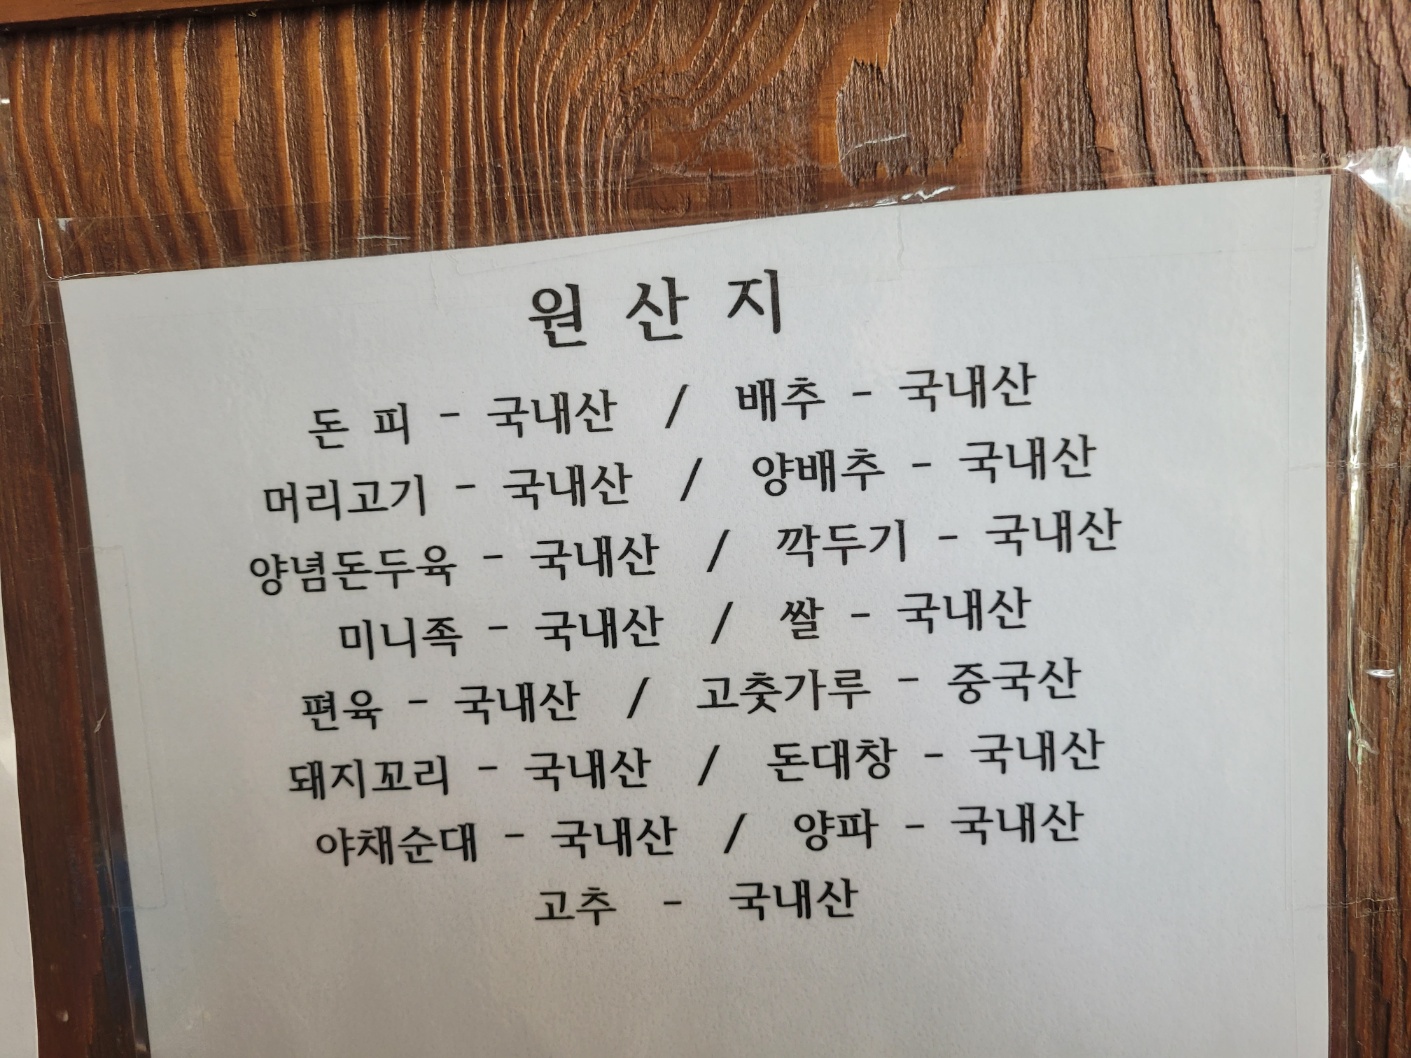 원 산 지
돈 피 - 국내산 / 배추 - 국내산
머리고기 - 국내산 / 양배추 - 국내산
양념돈두육 - 국내산 / 깍두기 - 국내산
미니족 - 국내산 / 쌀 - 국내산
편육 - 국내산 / 고춧가루 - 중국산
돼지꼬리 - 국내산 / 돈대창 - 국내산
야채순대 - 국내산 / 양파 - 국내산
고추 - 국내산